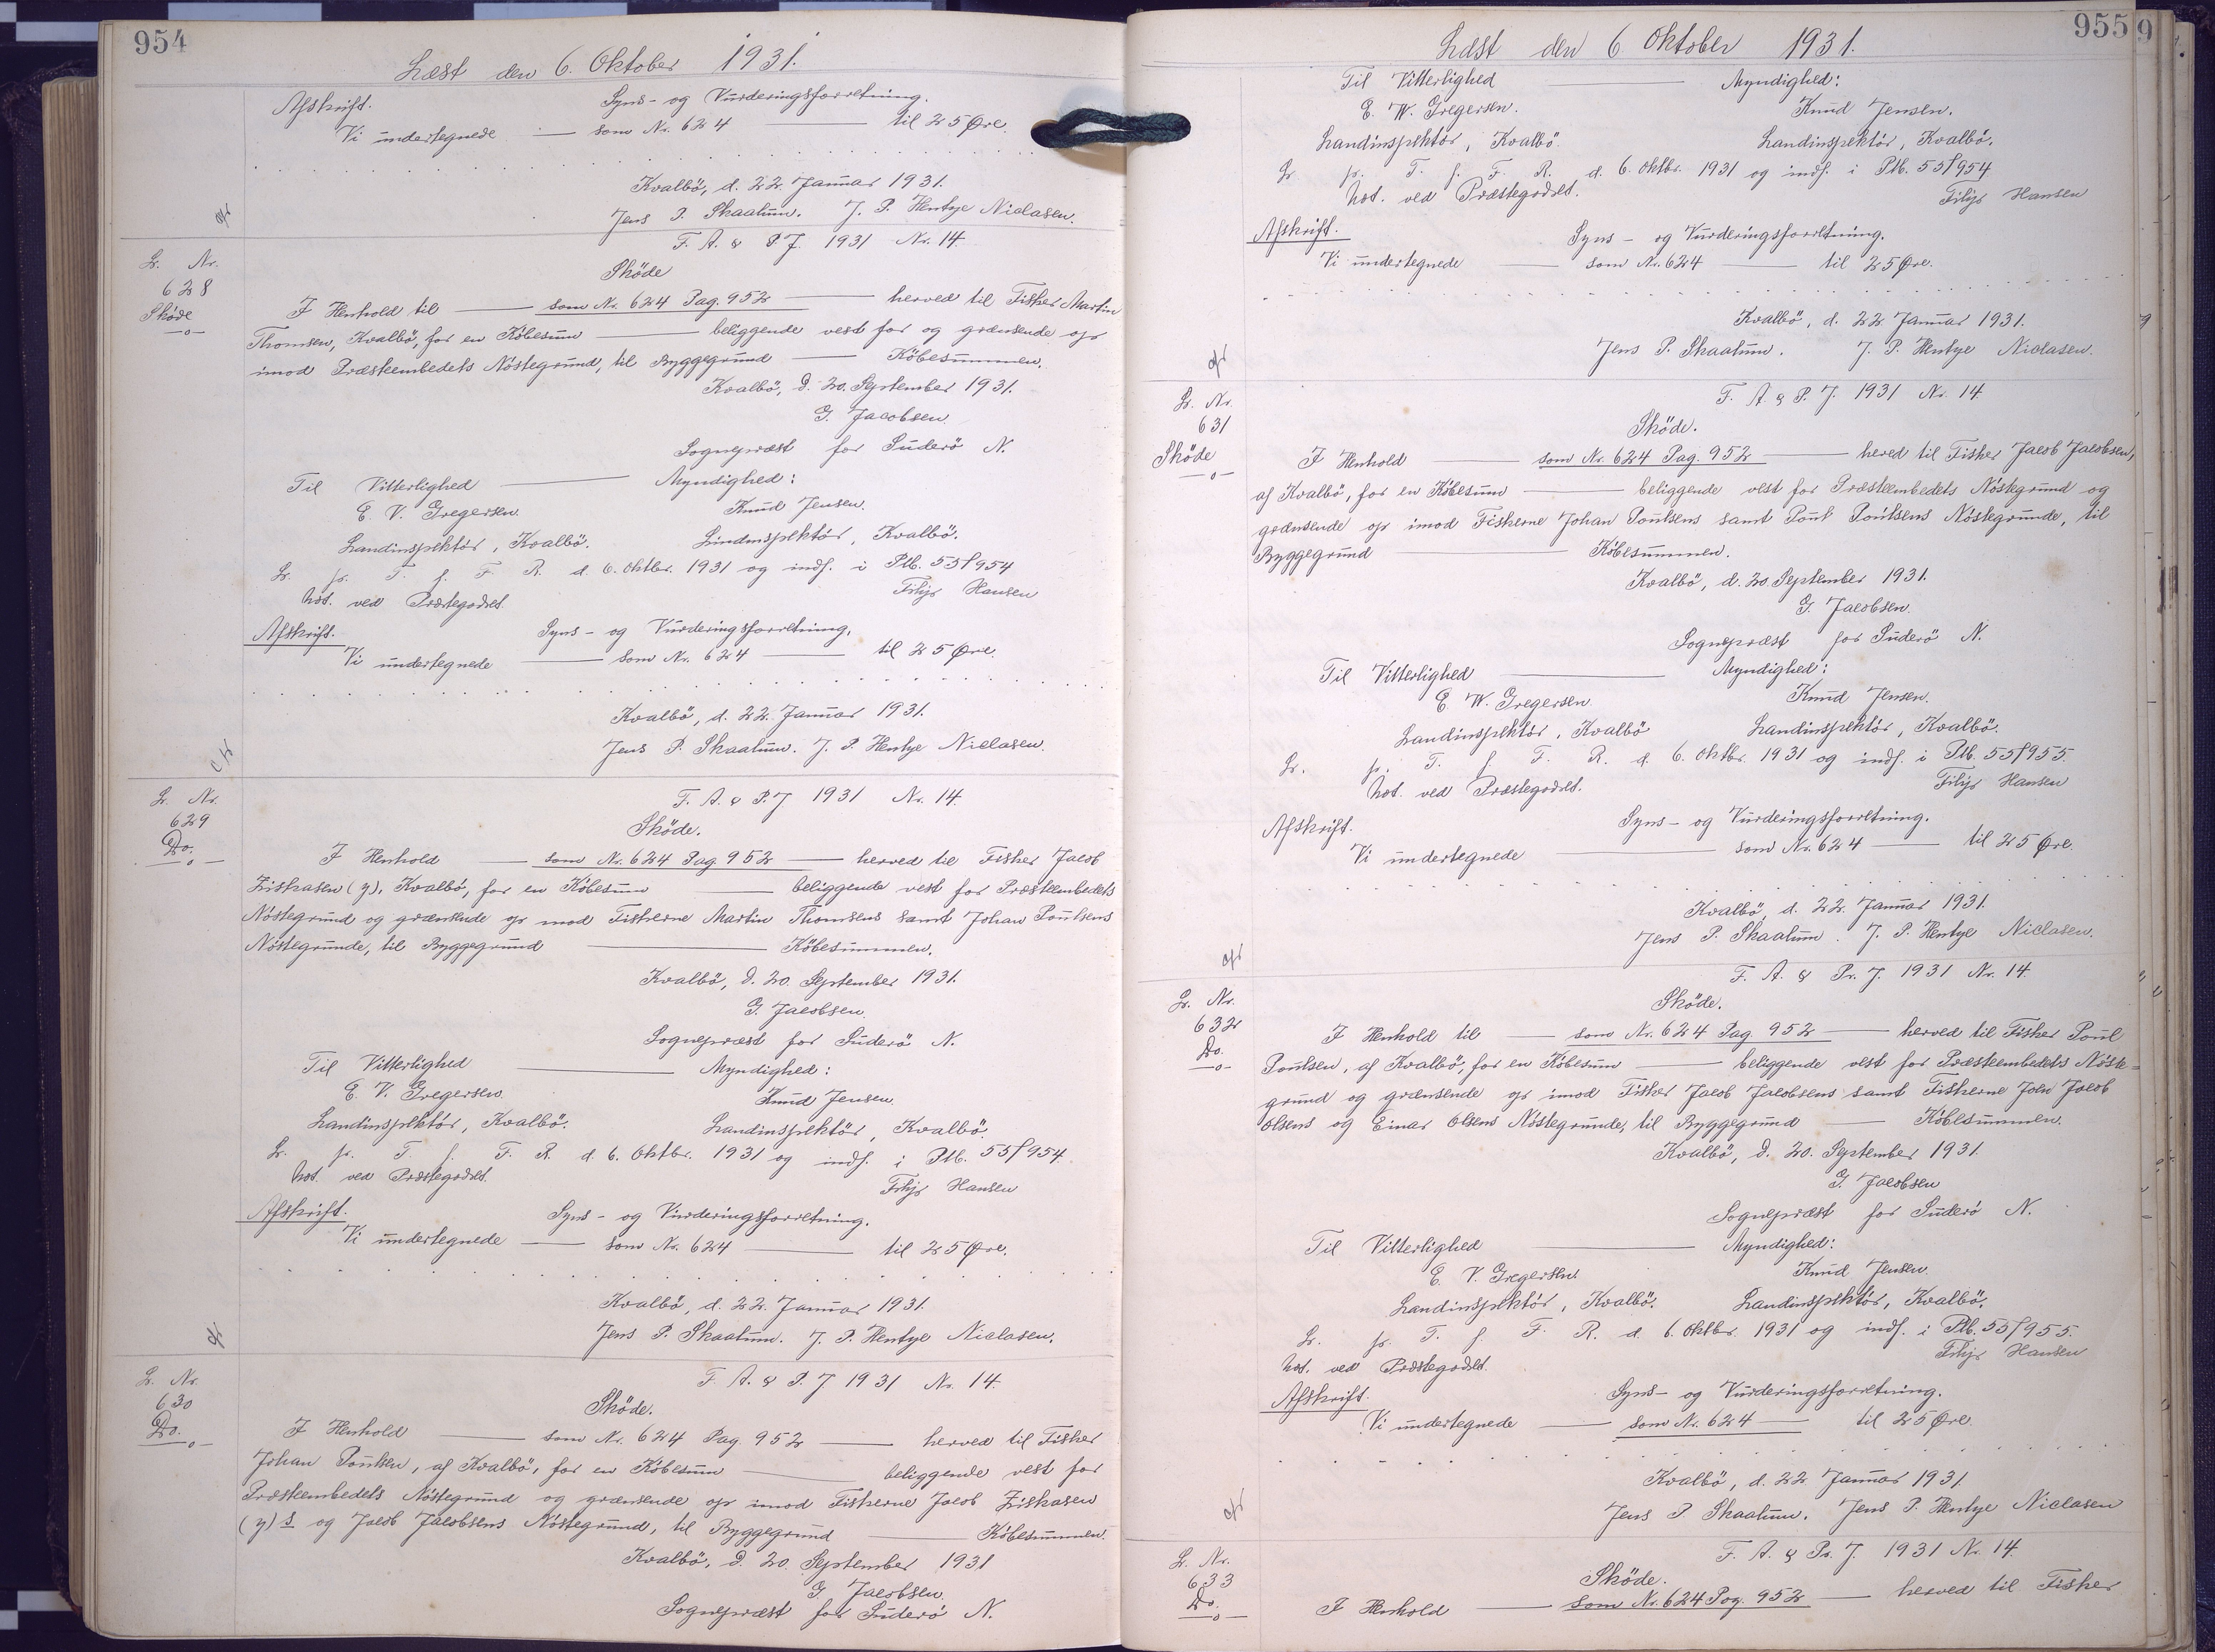 954
Læst den 6. Oktober 1931.
Afskrift. Syns- og Vurderingsforretning.
Vi undertegnede — som Nr. 624 — til 25 Øre.
Kvalbö, d. 22. Januar 1931.
Jens P. Skaalum. J. P. Hentye Niclasen.
F. A. & P. J. 1931 Nr. 14.
L. Nr.
628
Sköde
Sköde
I Henhold til — som Nr. 624 Pag. 952 — herved til Fisker Martin
Thomsen, Kvalbö, for en Köbesum — beliggende vest for og grænsende op
imod Præsteembedets Nöstegrund, til Byggegrund — Köbesummen.
Kvalbö, d. 20. September 1931.
G. Jacobsen.
Sognepræst for Suderö N.
Til Vitterlighed — Myndighed:
E. V. Gregersen. Knud Jensen.
Landinspektör, Kvalbö. Lindinspektör, Kvalbö.
L. p. T. f. F. R. d. 6. Oktbr. 1931 og indf. i Ptb. 55/954
Not. ved Præstegodset. Filip Hansen
Afskrift. Syns- og Vurderingsforretning.
Vi undertegnede — som Nr. 624 — til 25 Øre.
Kvalbö, d. 22. Januar 1931.
Jens P. Skaalum. J. P. Hentye Niclasen.
F. A. & P. J 1931 Nr. 14.
L. Nr.
629
Do.
Sköde.
I Henhold — som Nr. 624 Pag. 952 — herved til Fisker Jacob
Ziskasen (y), Kvalbö, for en Köbesum — beliggende vest for Præsteembedets
Nöstegrund og grænsende op mod Fiskerne Martin Thomsens samt Johan Poulsens
Nöstegrunde, til Byggegrund — Köbesummen.
Kvalbö, d. 20. September 1931.
G. Jacobsen.
Sognepræst for Suderö N.
Til Vitterlighed — Myndighed:
E. V. Gregersen. Knud Jensen.
Landinspektör, Kvalbö. Landinspektör, Kvalbö.
L. p. T. f. F. R. d. 6. Oktbr. 1931 og indf. i Ptb. 55/954.
Not. ved Præstegodset. Filip Hansen
Afskrift. Syns- og Vurderingsforretning.
Vi undertegnede — som Nr. 624 — til 25 Øre.
Kvalbö, d. 22. Januar 1931.
Jens P. Skaalum. J. P. Hentye Niclasen.
F. A. & P. J 1931 Nr. 14.
L. Nr.
630
Do.
Sköde.
I Henhold — som Nr. 624 Pag. 952 — herved til Fisker
Johan Poulsen, af Kvalbö, for en Köbesum — beliggende vest for
Præsteembedets Nöstegrund og grænsende op imod Fiskerne Jacob Ziskasen
(y) s og Jacob Jacobsens Nöstegrund, til Byggegrund — Köbesummen.
Kvalbö, d. 20. September 1931
G. Jacobsen.
Sognepræst for Suderö N.
955
9
Læst den 6. Oktober 1931.
Til Vitterlighed — Myndighed:
E. W. Gregersen. Knud Jensen.
Landinspektör, Kvalbö. Landinspektör, Kvalbö.
L. p. T. f. F. R. d. 6. Oktbr. 1931 og indf. i Ptb. 55/954
Not. ved Præstegodset. Filip Hansen
Afskrift. Syns- og Vurderingsforretning.
Vi undertegnede — som Nr. 624 — til 25 Øre.
Kvalbö, d. 22 Januar 1931.
Jens P. Skaalum. J. P. Hentye Niclasen.
F. A. & P. J. 1931 Nr. 14
L. Nr.
631
Sköde
Sköde.
I Henhold — som Nr. 624 Pag. 952 — herved til Fisker Jacob Jacobsen,
af Kvalbö, for en Köbesum — beliggende vest for Præsteembedets Nöstegrund og
grænsende op imod Fiskerne Johan Poulsens samt Poul Poulsens Nöstegrunde, til
Byggegrund — Köbesummen.
Kvalbö, d. 20. September 1931.
G. Jacobsen.
Sognepræst for Suderö N.
Til Vitterlighed — Myndighed:
E. W. Gregersen. Knud Jensen.
Landinspektör, Kvalbö Landinspektör, Kvalbö.
L. p. T. f. F. R. d. 6. Oktbr. 1931 og indf. i Ptb. 55/955.
Not. ved Præstegodset. Filip Hansen
Afskrift. Syns- og Vurderingsforretning.
Vi undertegnede — som Nr. 624 — til 25 Øre.
Kvalbö, d. 22. Januar 1931.
Jens P. Skaalum. J. P. Hentye Niclasen.
F. A. & Pr. J. 1931 Nr. 14.
L. Nr.
632
Do.
Sköde.
I Henhold til — som Nr. 624 Pag. 952 — herved til Fisker Poul
Poulsen, af Kvalbö, for en Köbesum — beliggende vest for Præsteembedets Nöste=
grund og grænsende op imod Fisker Jacob Jacobsens samt Fiskerne Joen Jacob
Olsens og Einar Olsens Nöstegrunde, til Byggegrund — Köbesummen.
Kvalbö, d. 20. September 1931.
G. Jacobsen
Sognepræst for Suderö N.
Til Vitterlighed — Myndighed:
E. V. Gregersen. Knud Jensen.
Landinspektör, Kvalbö. Landinspektör, Kvalbö.
L. p. T. f. F. R. d. 6. Oktbr. 1931 og indf. i Ptb. 55/955.
Not. ved Præstegodset. Filip Hansen
Afskrift. Syns- og Vurderingsforretning.
Vi undertegnede — som Nr. 624 — til 25 Øre.
Kvalbö, d. 22 Januar 1931.
Jens P. Skaalum. Jens P. Hentye Niclasen
F. A. & Pr. J. 1931 Nr. 14.
L. Nr.
633
Do.
Sköde.
I Henhold — som Nr. 624 Pog. 952 — herved til Fisker